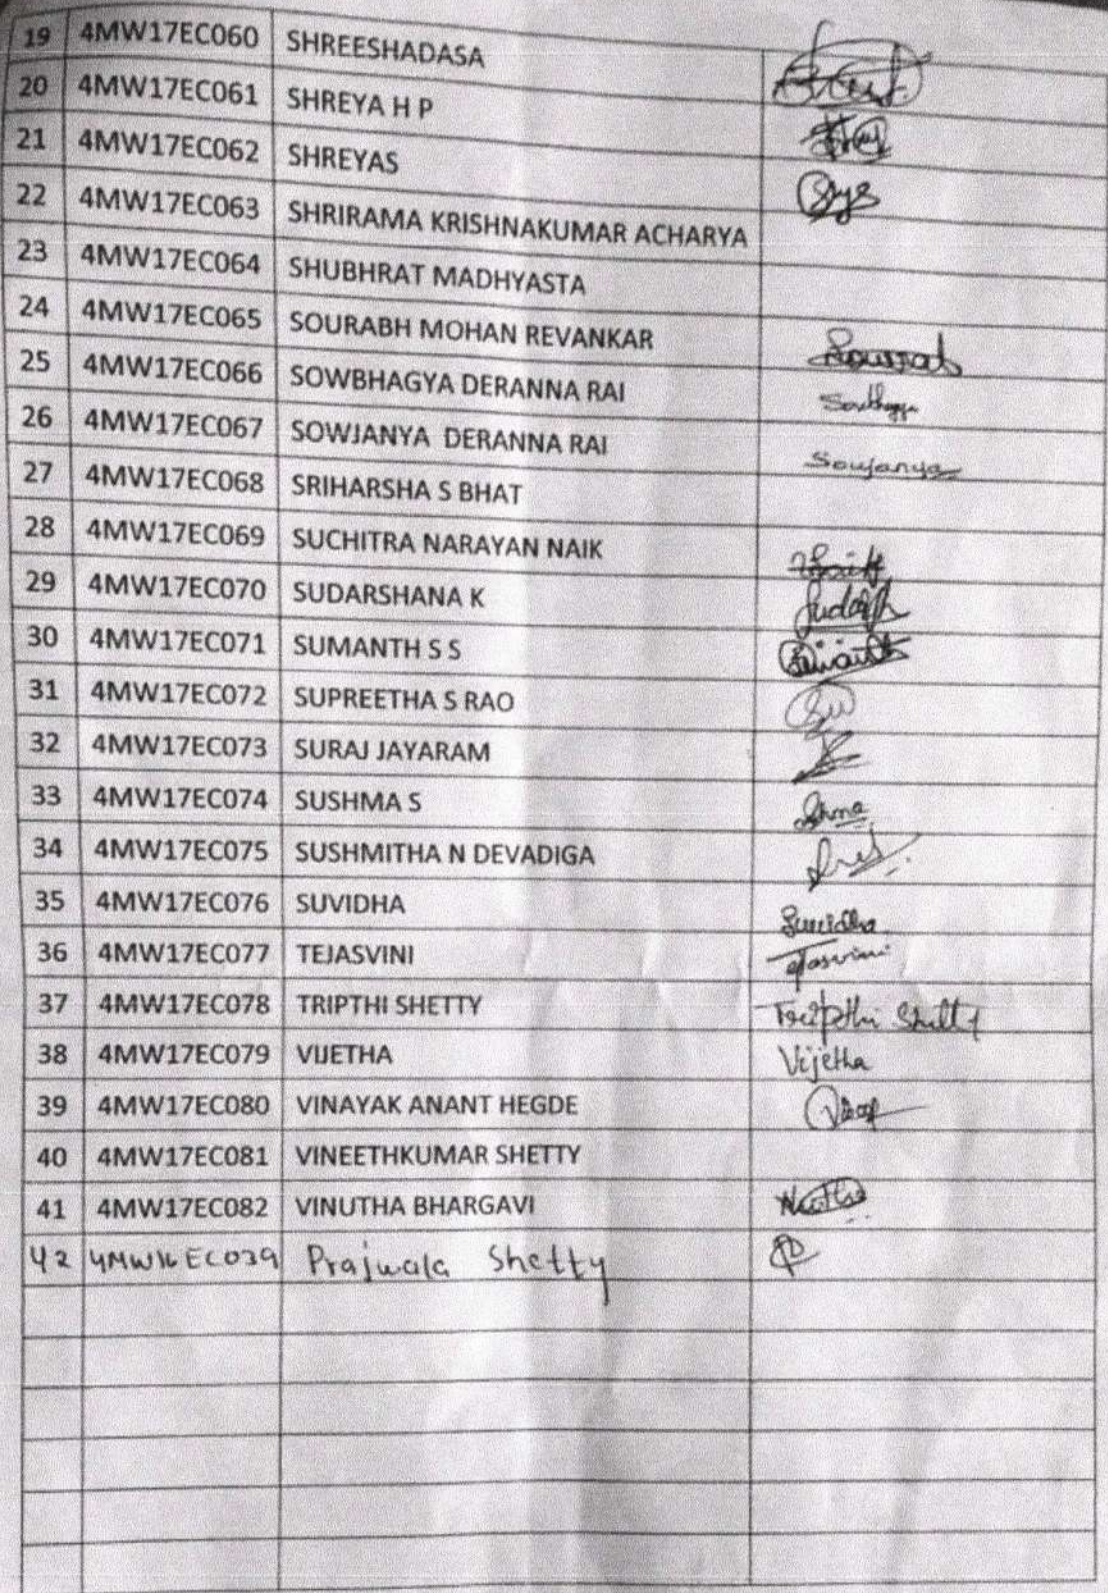 19 4MW17EC060 SHREESHADASA
20 4MW17EC061 SHREYA H P
21 4MW17EC062 SHREYAS
22 4MW17EC063 SHRIRAMA KRISHNAKUMAR ACHARYA
23 4MW17EC064 SHUBHRAT MADHYASTA
24 4MW17EC065 SOURABH MOHAN REVANKAR
25 4MW17EC066 SOWBHAGYA DERANNA RAI
26 4MW17EC067 SOWJANYA DERANNA RAI Soujanya
27 4MW17EC068 SRIHARSHA S BHAT
28 4MW17EC069 SUCHITRA NARAYAN NAIK
29 4MW17EC070 SUDARSHANA K
30 4MW17EC071 SUMANTH S S
31 4MW17EC072 SUPREETHA S RAO
32 4MW17EC073 SURAJ JAYARAM
33 4MW17EC074 SUSHMA S
34 4MW17EC075 SUSHMITHA N DEVADIGA
35 4MW17EC076 SUVIDHA Suvidha
36 4MW17EC077 TEJASVINI
37 4MW17EC078 TRIPTHI SHETTY Tripthi Shetty
38 4MW17EC079 VIJETHA Vijetha
39 4MW17EC080 VINAYAK ANANT HEGDE
40 4MW17EC081 VINEETHKUMAR SHETTY
41 4MW17EC082 VINUTHA BHARGAVI
42 4MW16EC039 Prajwala Shetty